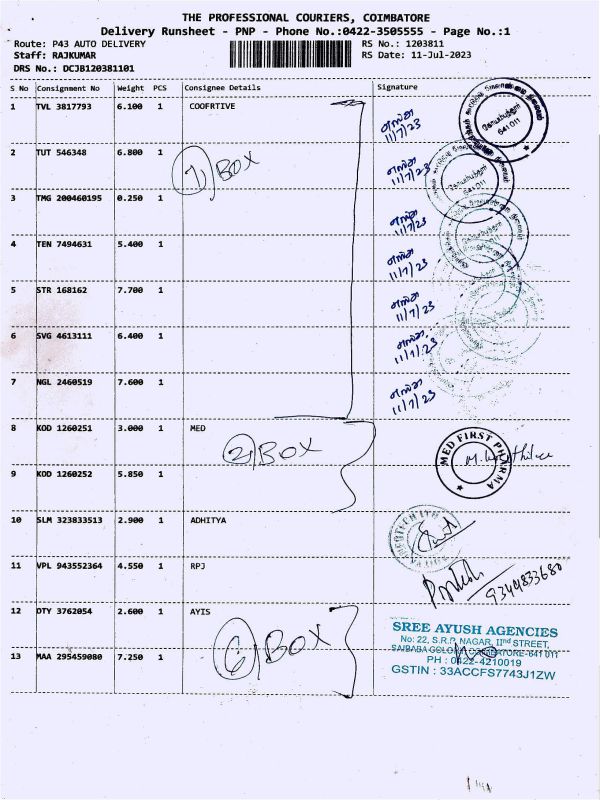 THE PROFESSIONAL COURIERS, COIMBATORE
Delivery Runsheet - PNP - Phone No.:0422-3505555 - Page No.:1
Route: P43 AUTO DELIVERY RS No.: 1203811
Staff: RAJKUMAR RS Date: 11-Jul-2023
DRS No.: DCJB120381101
S No Consignment No Weight PCS Consignee Details Signature
1 TVL 3817793 6.100 1 COOFRTIVE
11/7/23
கோயமுத்தூர்
641 011
2 TUT 546348 6.800 1
7) BOX
11/7/23
641 011
3 TMG 200460195 0.250 1
11/7/23
4 TEN 7494631 5.400 1
11/7/23
5 STR 168162 7.700 1
11/7/23
6 SVG 4613111 6.400 1
11/7/23
7 NGL 2460519 7.600 1
11/7/23
8 KOD 1260251 3.000 1 MED
2) BOX
MED FIRST PHARMA
9 KOD 1260252 5.850 1
10 SLM 323833513 2.900 1 ADHITYA
11 VPL 943552364 4.550 1 RPJ
12 DTY 3762054 2.600 1 AYIS
6) BOX
SREE AYUSH AGENCIES
No: 22, S.R.P. NAGAR, IInd STREET,
SAIBABA COLONY, COIMBATORE-641 011
13 MAA 295459080 7.250 1
PH : 0422-4210019
GSTIN : 33ACCFS7743J1ZW